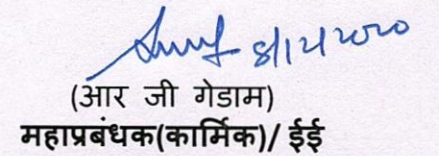 8/12/2020
(आर जी गेडाम)
महाप्रबंधक(कार्मिक)/ ईई